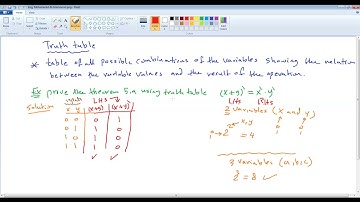 Truth table
* table of all possible combinations of the variables showing the relation
between the variable values and the result of the operation.
Ex prove the theorem 5.a using truth table (x+y)' = x'.y'
LHS RHS
Solution inputs LHS
x y (x+y) (x+y)'
0 0 0 1
0 1 1 0
1 0 1 0
1 1 1 0
2 variables (x and y)
n → 2 = 4
3 variables (a,b,c)
2³ = 8 ✓